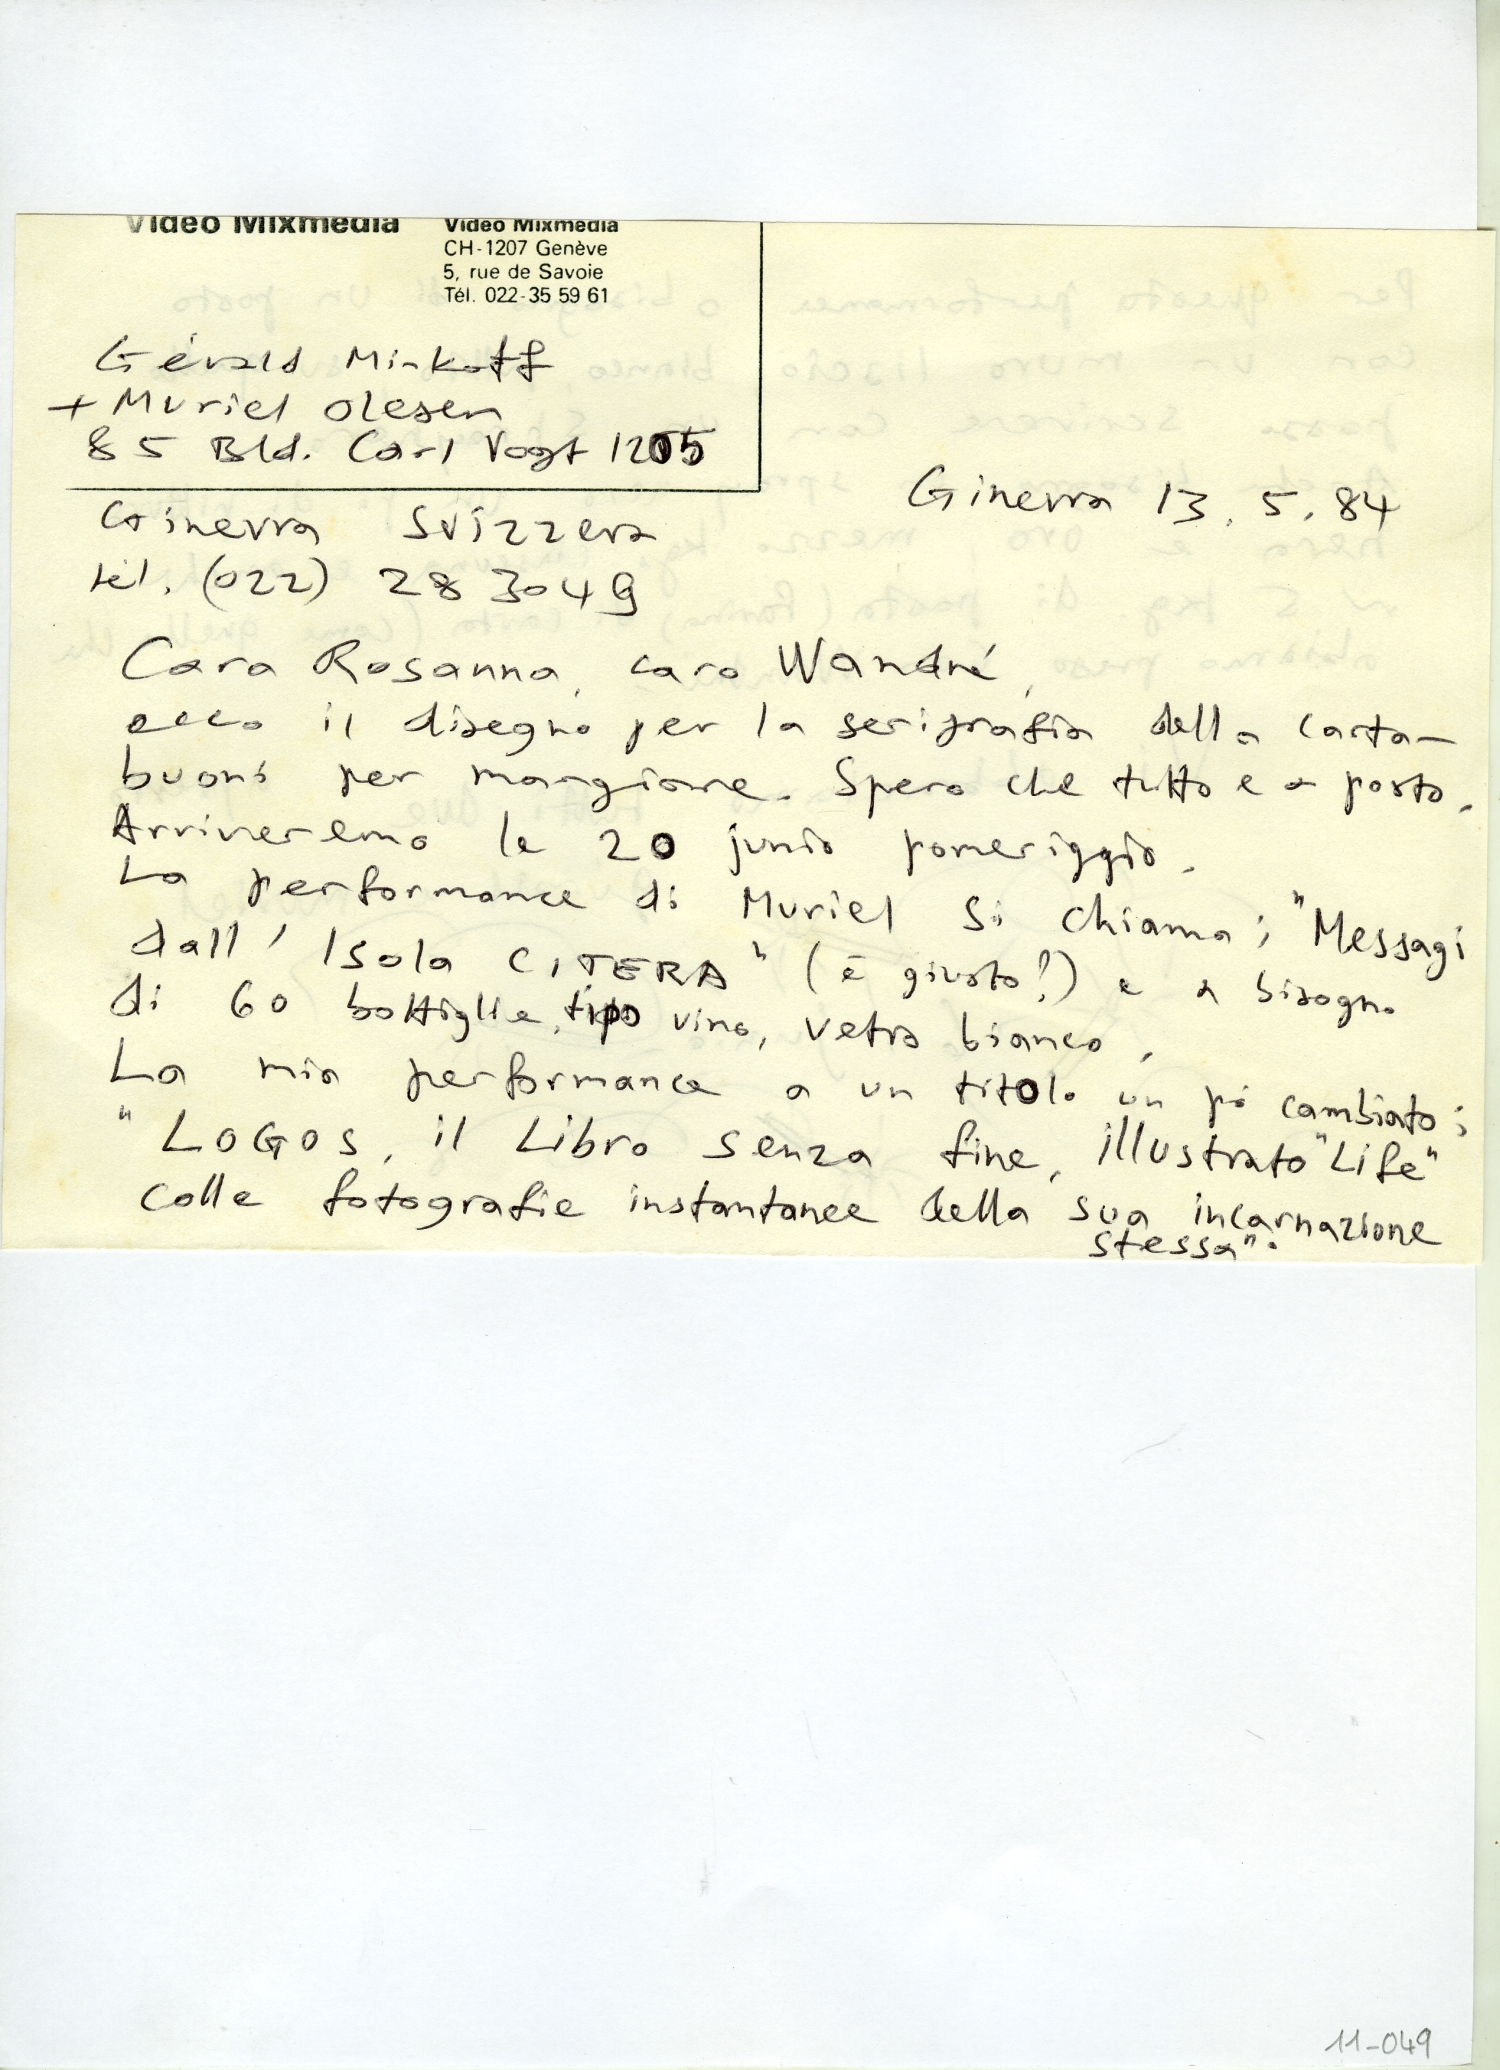 Video Mixmedia
Video Mixmedia
CH-1207 Genève
5, rue de Savoie
Tél. 022-35 59 61
Gérald Minkoff
+ Muriel Olesen
85 Bld. Carl Vogt 1205
Ginevra Svizzera
tél. (022) 28 30 49
Ginevra 13. 5. 84
Cara Rosanna, caro Wandré,
ecco il disegno per la serigrafia della carta-
buoni per mangiare. Spero che tutto e a posto.
Arriveremo le 20 junio pomeriggio.
La performance di Muriel si chiama: "Messagi
dall' Isola CITERA" (è giusto?) e a bisogno
di 60 bottiglie, tipo vino, vetro bianco.
La mia performance a un titolo un pó cambiato:
"LOGOS, il Libro senza fine, illustrato "Life"
colle fotografie instantanee della sua incarnazione
stessa".
11-049